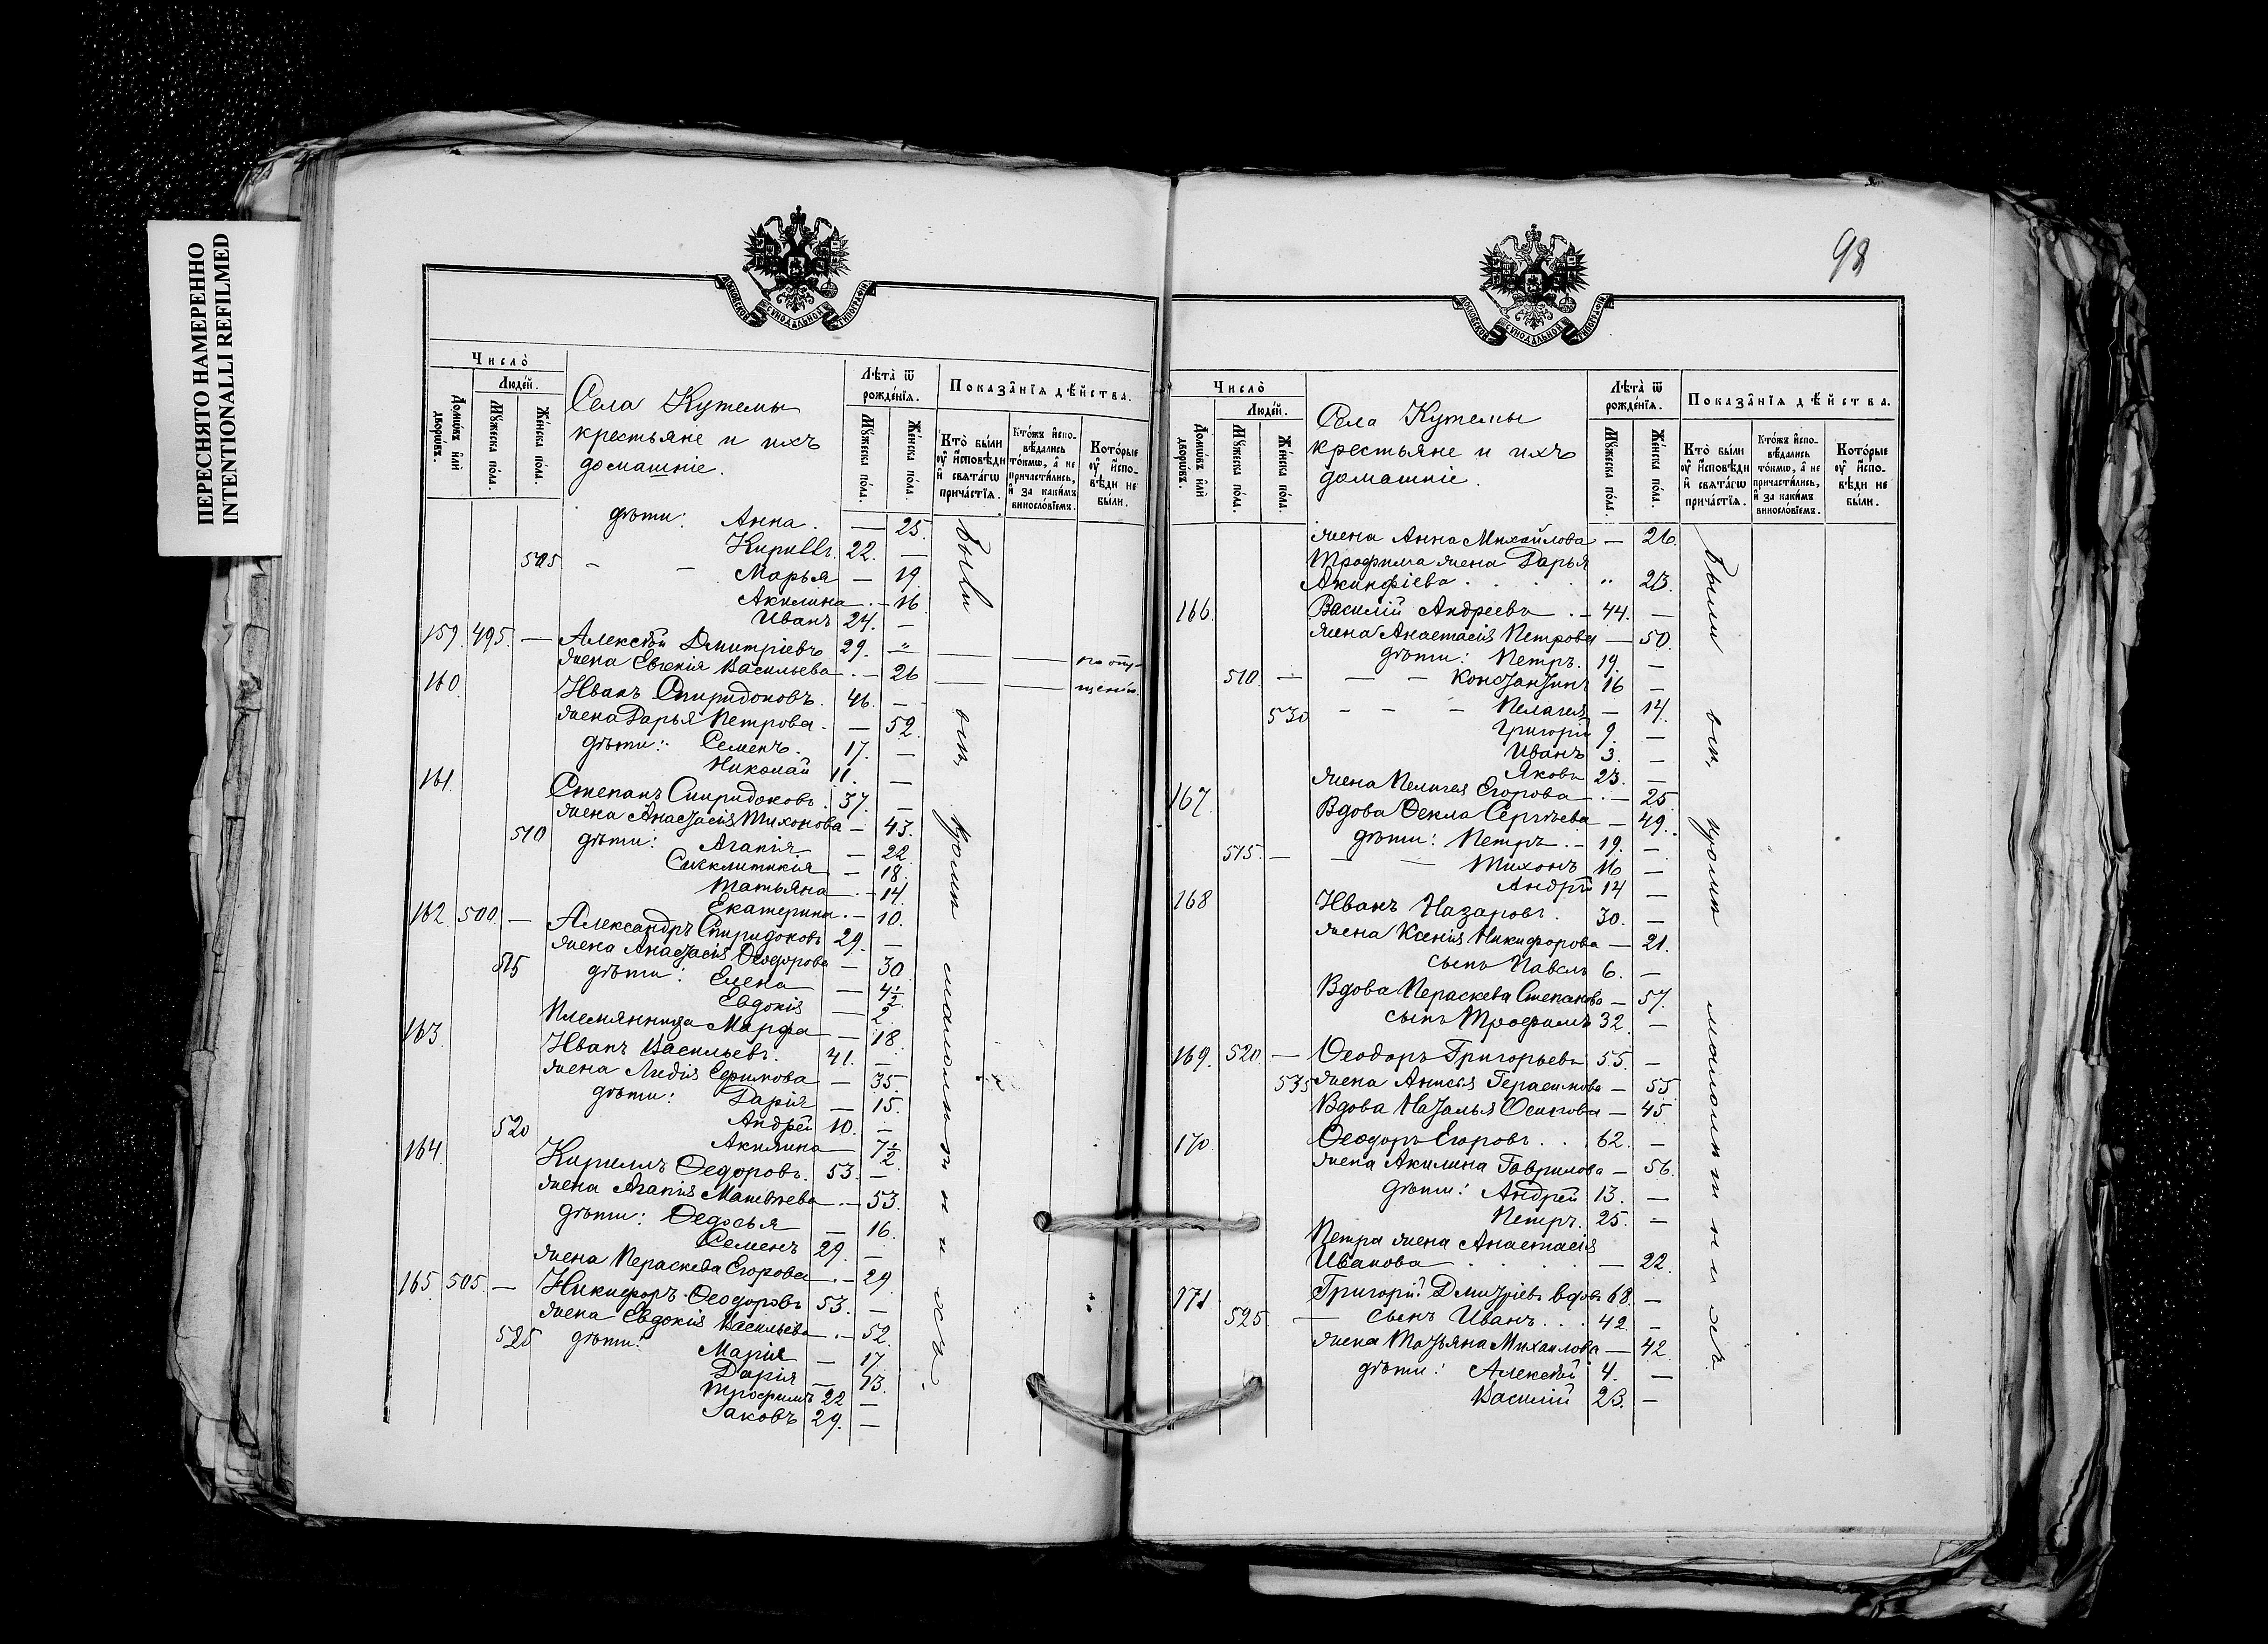 ПЕРЕСНЯТО НАМЕРЕННО
INTENTIONALLI REFILMED
МОСКОВСКОЙ СѴНОДАЛЬНОЙ ТИПОГРАФІИ
Число̀
Людéй.
Домѡ́въ и҆лѝ дворѡ́въ.
Мꙋ́жеска по́ла.
Же́нска по́ла.
Села Кутемы
крестьяне и ихъ
домашніе.
Лѣта̀ ѿ рожде́нїѧ.
Мꙋ́жеска по́ла.
Же́нска по́ла.
Показа̑нїѧ дѣ́йства.
Кто̀ бы́ли ᲂу҆ и҆сповѣ́ди и҆ свѧта́гѡ прича́стїѧ.
Кто́жъ и҆сповѣ́дались то́кмѡ, а҆ не причасти́лись, и҆ за каки́мъ винослóвїемъ.
Кото́рые ᲂу҆ и҆сповѣ́ди не бы́ли.
дѣти: Анна. — 25.
Кириллъ. 22. —
505 - - Марья — 19.
Акилина . — 16
Иванъ 24. —
159. 495. — Алексѣй Дмитріевъ 29. "
жена Евгенія Васильева . — 26 — — по опу-
160. Иванъ Спиридоновъ. 46. — — — щенію.
жена Дарья Петрова. — 52.
дѣти: Семенъ. 17. —
Николай 11. —
161. Степанъ Спиридоновъ. 37. —
жена Анастасія Тихонова — 43.
510 дѣти: Агапія — 22.
Сигклитикія — 18.
Татьяна — 14.
Екатерина. — 10.
162. 500. — Александръ Спиридоновъ 29. —
жена Анастасія Ѳеодорова — 30
515 дѣти: Елена — 4½
Евдокія — 2
Племянница Марфа — 18.
163. Иванъ Васильевъ. 41. —
жена Лидія Ефимова — 35.
дѣти: Дарія — 15.
Андрей 10. —
520 Акилина — 7½
164. Кириллъ Ѳедоровъ. 53. —
жена Агапія Матвѣева . — 53.
дѣти: Ѳедосья — 16.
Семенъ 29. —
жена Пераскева Егорова . — 29
165. 505. — Никифоръ Ѳеодоровъ 53. —
жена Евдокія Васильева . — 52.
525 дѣти: Марія — 17.
Дарія — 13.
Трофимъ 22 —
Іаковъ 29. —
Были всѣ, кромѣ малолѣтнихъ.
98
МОСКОВСКОЙ СѴНОДАЛЬНОЙ ТИПОГРАФІИ
Число̀
Людéй.
Домѡ́въ и҆лѝ дворѡ́въ.
Мꙋ́жеска по́ла.
Же́нска по́ла.
Села Кутемы
крестьяне и ихъ
домашніе.
Лѣта̀ ѿ рожде́нїѧ.
Мꙋ́жеска по́ла.
Же́нска по́ла.
Показа̑нїѧ дѣ́йства.
Кто̀ бы́ли ᲂу҆ и҆сповѣ́ди и҆ свѧта́гѡ прича́стїѧ.
Кто́жъ и҆сповѣ́дались то́кмѡ, а҆ не причасти́лись, и҆ за каки́мъ винослóвїемъ.
Кото́рые ᲂу҆ и҆сповѣ́ди не бы́ли.
жена Анна Михайлова — 26.
Трофима жена Дарья
Акинфіева . . . . " 23.
166. Василій Андреевъ . — 44. —
жена Анастасія Петрова — 50.
дѣти: Петръ. 19. —
510. — — — Константинъ 16 —
530 - - - Пелагея — 14.
Григорій 9. —
Иванъ 3. —
Яковъ 23. —
жена Пелагея Егорова . — 25.
167. Вдова Ѳекла Сергѣева — 49.
дѣти: Петръ . — 19. —
515. — — — Тихонъ 16 —
Андрей 14 —
168 Иванъ Назаровъ. 30. —
жена Ксенія Никифорова — 21.
сынъ Павелъ 6. —
Вдова Пераскева Степанова — 57.
сынъ Трофимъ 32. —
169. 520. — Ѳеодоръ Григорьевъ 55. —
535 жена Анисія Герасимова — 55
Вдова Наталья Осипова — 45.
170. Ѳеодоръ Егоровъ . . . 62. —
жена Акилина Гаврилова — 56.
дѣти: Андрей 13. —
Петръ. 25. —
Петра жена Анастасія
Иванова . . . . — 22.
171 Григорій Дмитріевъ вдовъ 68. —
525. — сынъ Иванъ. . . 42. —
жена Татьяна Михаилова — 42
дѣти: Алексѣй 4. —
Василій 23. —
Были всѣ, кромѣ малолѣтнихъ.